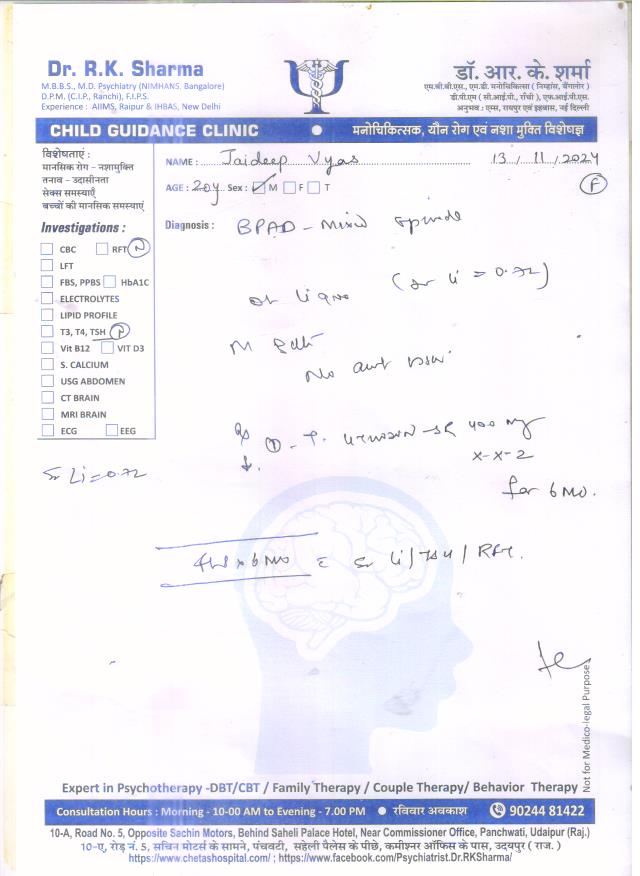 Dr. R.K. Sharma
M.B.B.S., M.D. Psychiatry (NIMHANS, Bangalore)
D.P.M. (C.I.P., Ranchi), F.I.P.S.
Experience : AIIMS, Raipur & IHBAS, New Delhi
डॉ. आर. के. शर्मा
एम.बी.बी.एस., एम.डी. मनोचिकित्सा ( निम्हांस, बैंगलोर )
डी.पी.एम ( सी.आई.पी., राँची ), एफ.आई.पी.एस.
अनुभव : एम्स, रायपुर एवं इहबास, नई दिल्ली
CHILD GUIDANCE CLINIC
मनोचिकित्सक, यौन रोग एवं नशा मुक्ति विशेषज्ञ
विशेषताएं :
मानसिक रोग - नशामुक्ति
तनाव - उदासीनता
सेक्स समस्याएँ
बच्चों की मानसिक समस्याएं
NAME : Jaideep Vyas 13/11/2024
AGE : 20y Sex : M F T
F
Diagnosis : BPAD - Mixed episode
Investigations :
CBC RFT N
LFT
FBS, PPBS HbA1C
ELECTROLYTES
LIPID PROFILE
T3, T4, TSH
Vit B12 VIT D3
S. CALCIUM
USG ABDOMEN
CT BRAIN
MRI BRAIN
ECG EEG
Sr Li = 0.72
(Sr Li = 0.72)
No
1 - T. -SR 400 mg
X-X-2
for 6 Mo.
x 6 Mo c Sr Li/TSH/RFT.
Not for Medico-legal Purpose
Expert in Psychotherapy -DBT/CBT / Family Therapy / Couple Therapy/ Behavior Therapy
Consultation Hours : Morning - 10-00 AM to Evening - 7.00 PM ● रविवार अवकाश 90244 81422
10-A, Road No. 5, Opposite Sachin Motors, Behind Saheli Palace Hotel, Near Commissioner Office, Panchwati, Udaipur (Raj.)
10-ए, रोड़ नं. 5, सचिन मोटर्स के सामने, पंचवटी, सहेली पैलेस के पीछे, कमीश्नर ऑफिस के पास, उदयपुर ( राज. )
https://www.chetashospital.com/ ; https://www.facebook.com/Psychiatrist.Dr.RKSharma/